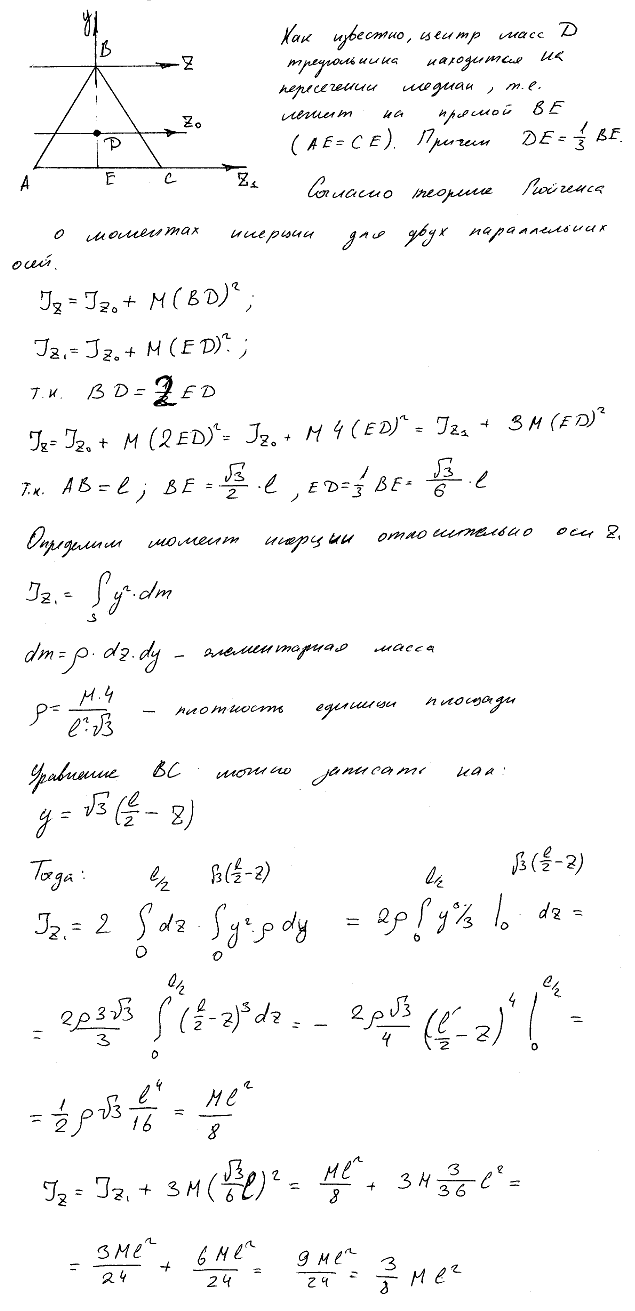 y
B
z
z₀
D
A E C z₁
Как известно, центр масс D
треугольника находится на
пересечении медиан, т.е.
лежит на прямой BE
(AE=CE). Причем DE=1/3 BE.
Согласно теореме Гюйгенса
о моментах инерции для двух параллельных
осей.
J_z = J_z₀ + M(BD)²;
J_z₁ = J_z₀ + M(ED)²;
т.к. BD = 2 ED
J_z = J_z₀ + M(2ED)² = J_z₀ + M 4(ED)² = J_z₁ + 3M(ED)²
т.к. AB = l; BE = √3/2 · l, ED = 1/3 BE = √3/6 · l
Определим момент инерции относительно оси z₁
J_z₁ = ∫_S y² · dm
dm = ρ · dz · dy – элементарная масса
ρ = M·4/(l²·√3) – плотность единицы площади
Уравнение BC можно записать как:
y = √3 (l/2 – z)
Тогда:
J_z₁ = 2 ∫₀^{l/2} dz · ∫₀^{√3(l/2–z)} y² · ρ dy = 2ρ ∫₀^{l/2} y³/3 |₀^{√3(l/2–z)} dz =
= 2ρ3√3/3 ∫₀^{l/2} (l/2 – z)³ dz = – 2ρ√3/4 (l/2 – z)⁴ |₀^{l/2} =
= 1/2 ρ√3 l⁴/16 = Ml²/8
J_z = J_z₁ + 3M(√3/6 l)² = Ml²/8 + 3M 3/36 l² =
= 3Ml²/24 + 6Ml²/24 = 9Ml²/24 = 3/8 Ml²